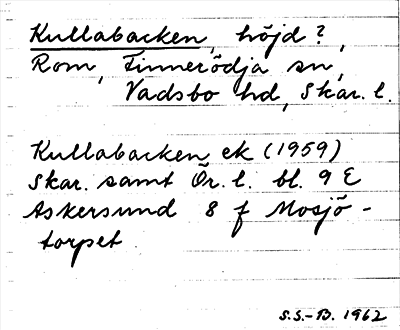 Kullabacken, höjd?,
Rom, Finnerödja sn,
Vadsbo hd, Skar. l.
Kullabacken ek (1959)
Skar. samt Ör. l. bl. 9 E
Askersund 8 f Mosjö-
torpet
S.S.-B. 1962